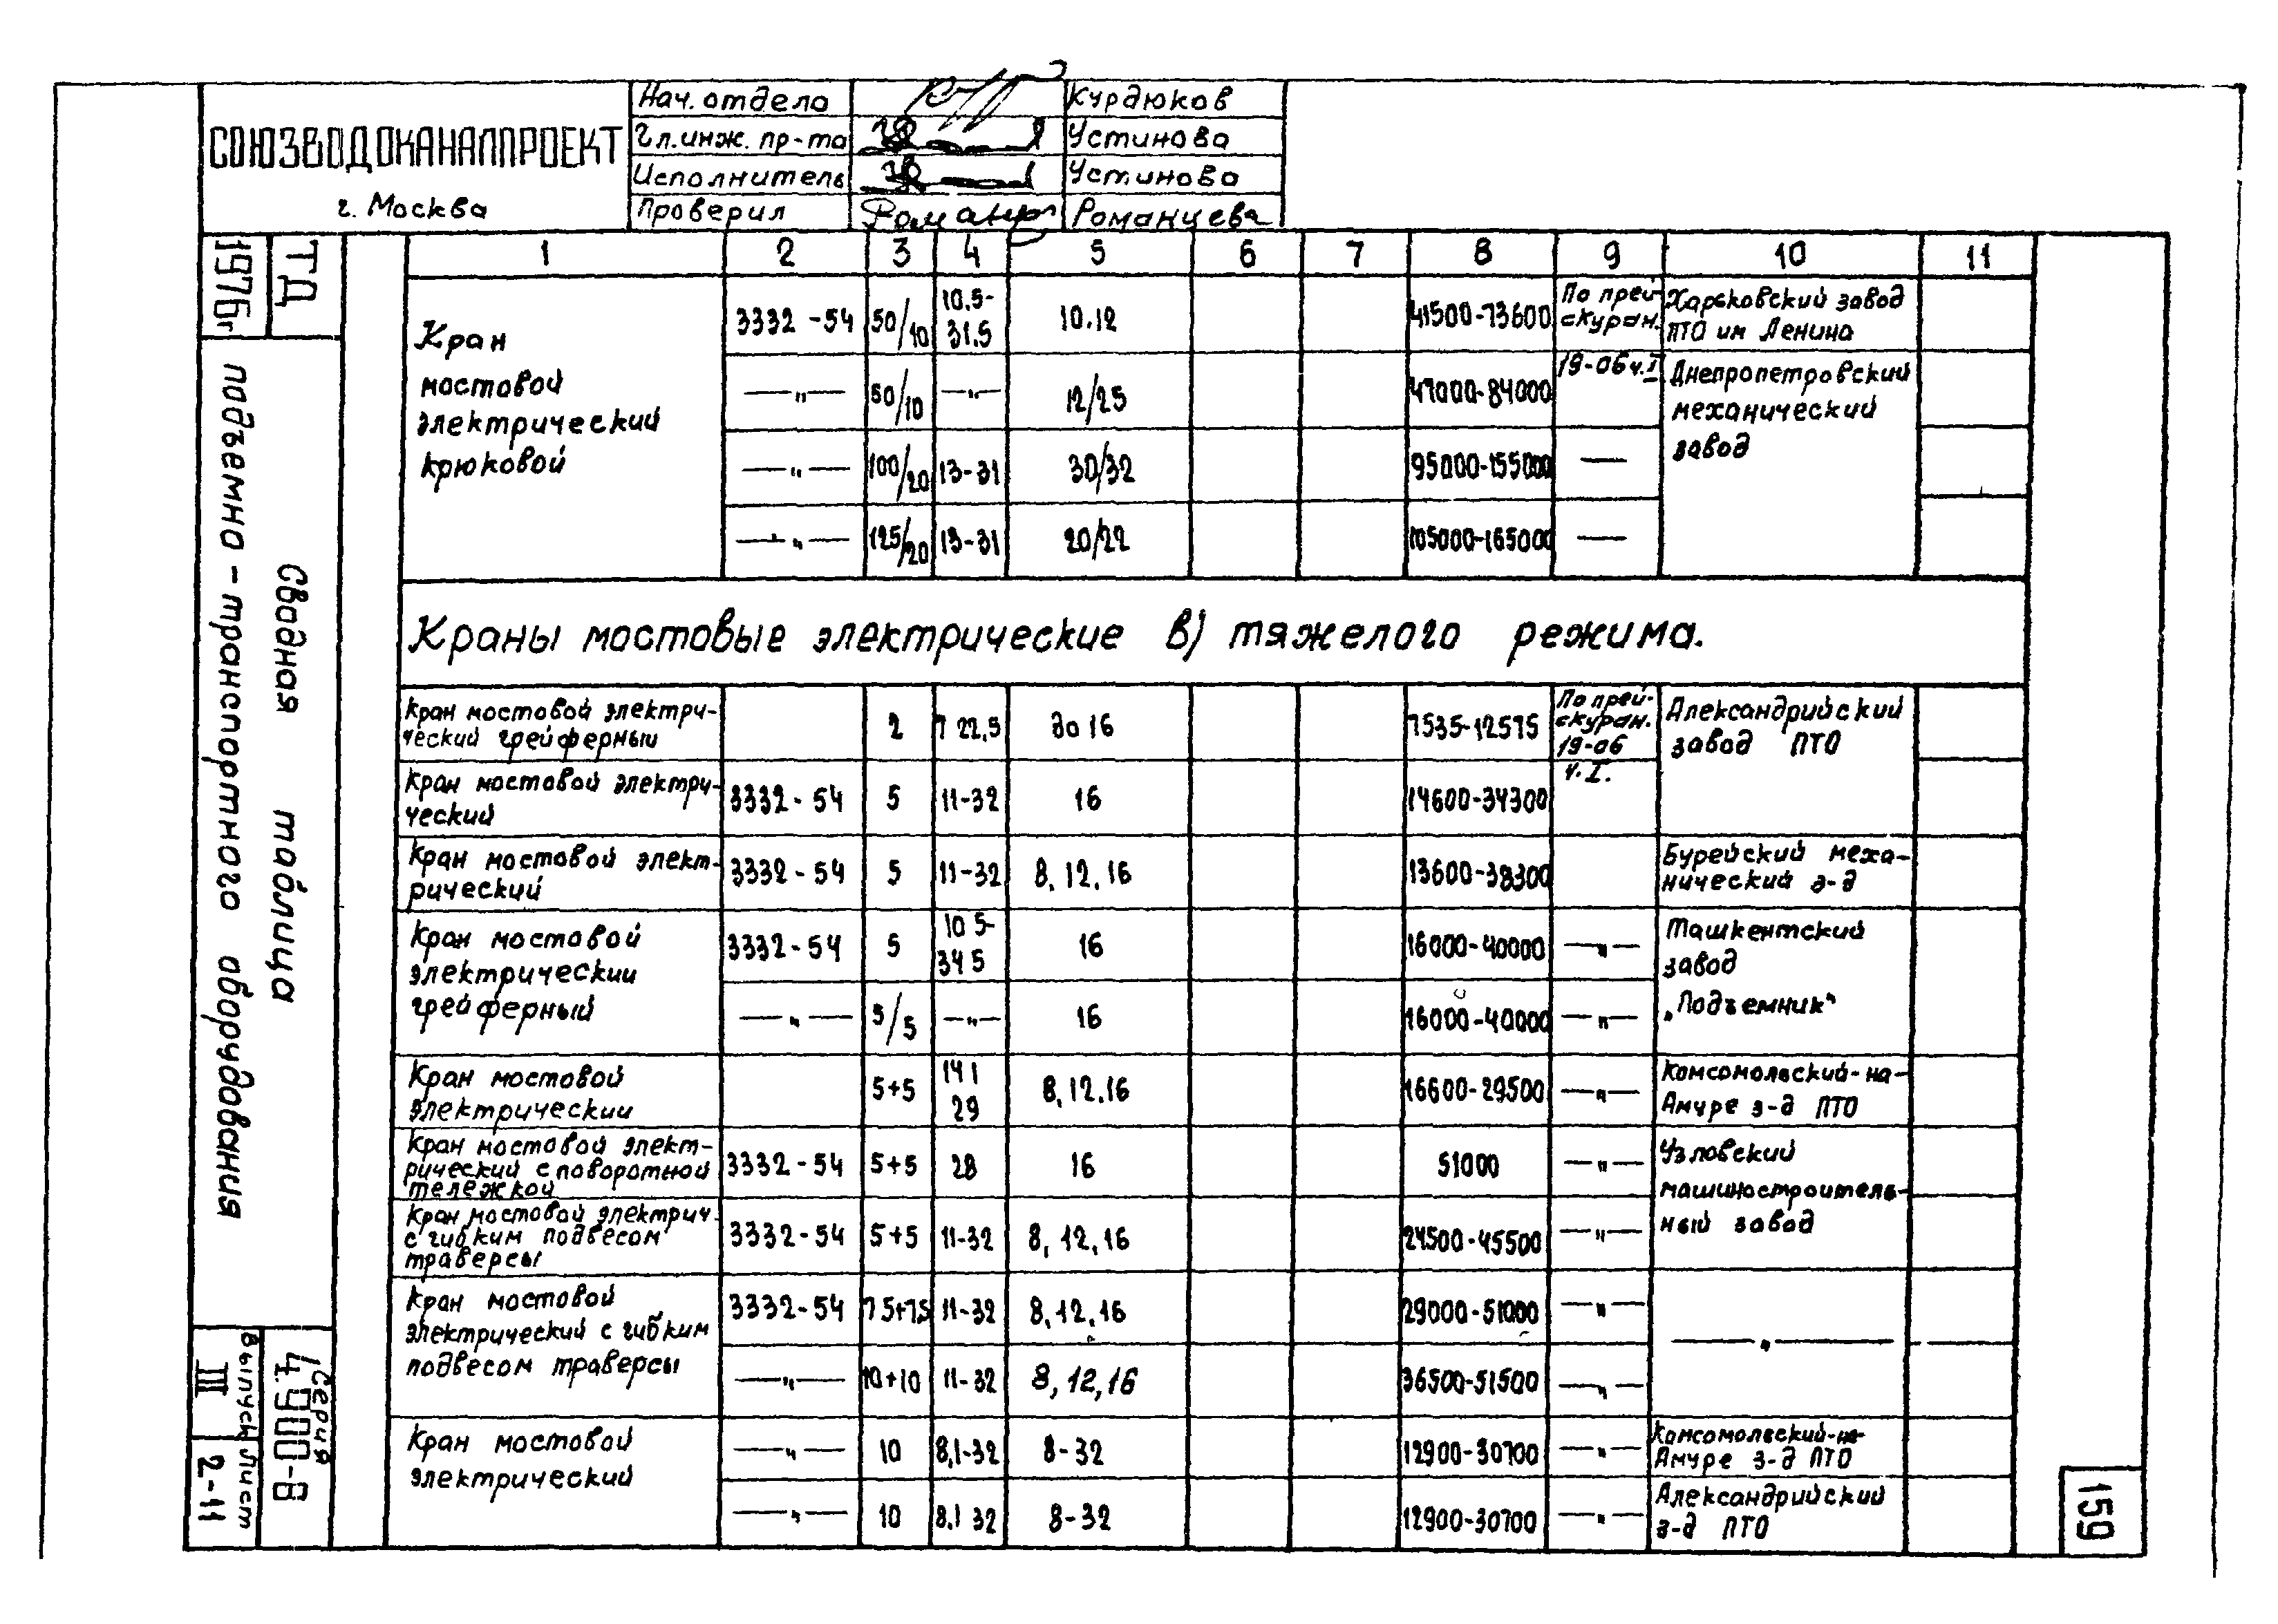 СОЮЗВОДОКАНАЛПРОЕКТ
г. Москва
Нач. отдела Курдюков
Гл. инж. пр-та Устинова
Исполнитель Устинова
Проверил Романцева
ТД
1976г
Сводная таблица
подъемно-транспортного оборудования
Серия
4.900-8
Выпуск
III
Лист
2-11
1 2 3 4 5 6 7 8 9 10 11
Кран
мостовой
электрический
крюковой
3332-54 50/10 10.5-31.5 10.12 41500-73600 По прейскуран. Харьковский завод
ПТО им Ленина
—"— 50/10 —"— 12/25 47000-84000 19-06 ч.I Днепропетровский
механический
завод
—"— 100/20 13-31 30/32 95000-155000 —
—"— 125/20 13-31 20/22 105000-165000 —
Краны мостовые электрические в) тяжелого режима.
Кран мостовой электри-
ческий грейферный 2 7 22,5 до 16 7535-12575 По прей-
скуран.
19-06
ч.I. Александрийский
завод ПТО
Кран мостовой электри-
ческий 3332-54 5 11-32 16 14600-34300
Кран мостовой элект-
рический 3332-54 5 11-32 8, 12, 16 13600-38300 Бурейский меха-
нический з-д
Кран мостовой
электрический
грейферный 3332-54 5 10 5-
34 5 16 16000-40000 —"— Ташкентский
завод
„Подъемник"
—"— 5/5 —"— 16 16000-40000 —"—
Кран мостовой
электрический 5+5 14 1
29 8, 12, 16 16600-29500 —"— Комсомольский-на-
Амуре з-д ПТО
Кран мостовой элект-
рический с поворотной
тележкой 3332-54 5+5 28 16 51000 —"— Узловский
машиностроитель-
ный завод
Кран мостовой электрич.
с гибким подвесом
траверсы 3332-54 5+5 11-32 8, 12, 16 24500-45500 —"—
Кран мостовой
электрический с гибким
подвесом траверсы 3332-54 7 5+7,5 11-32 8, 12, 16 29000-51000 —"— —"—
—"— 10+10 11-32 8, 12, 16 36500-51500 —"—
Кран мостовой
электрический —"— 10 8,1-32 8-32 12900-30700 —"— Комсомольский-на-
Амуре з-д ПТО
—"— 10 8,1 32 8-32 12900-30700 —"— Александрийский
з-д ПТО
159